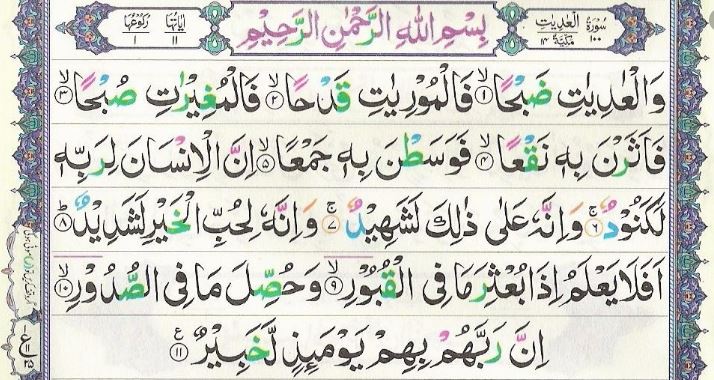 سُوْرَةُ الْعٰدِيٰتِ ١٠٠ مَكِّيَّةٌ ١٤ بِسْمِ اللّٰهِ الرَّحْمٰنِ الرَّحِيْمِ اٰيَاتُهَا ١١ رُكُوْعُهَا ١
وَالْعٰدِيٰتِ ضَبْحًا ۙ﴿١﴾ فَالْمُوْرِيٰتِ قَدْحًا ۙ﴿٢﴾ فَالْمُغِيْرٰتِ صُبْحًا ۙ﴿٣﴾
فَاَثَرْنَ بِهٖ نَقْعًا ۙ﴿٤﴾ فَوَسَطْنَ بِهٖ جَمْعًا ۙ﴿٥﴾ اِنَّ الْاِنْسَانَ لِرَبِّهٖ
لَكَنُوْدٌ ۚ﴿٦﴾ وَاِنَّهٗ عَلٰى ذٰلِكَ لَشَهِيْدٌ ۚ﴿٧﴾ وَاِنَّهٗ لِحُبِّ الْخَيْرِ لَشَدِيْدٌ ؕ﴿٨﴾
اَفَلَا يَعْلَمُ اِذَا بُعْثِرَ مَا فِى الْقُبُوْرِ ۙ﴿٩﴾ وَحُصِّلَ مَا فِى الصُّدُوْرِ ۙ﴿١٠﴾
اِنَّ رَبَّهُمْ بِهِمْ يَوْمَئِذٍ لَّخَبِيْرٌ ﴿١١﴾ ع